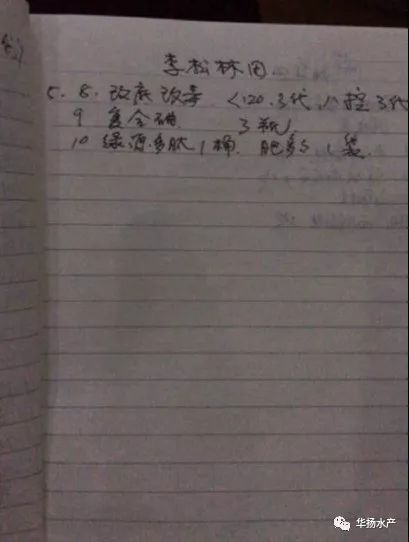 李松林田
5.8. 改底改毒 <120.3代, 八控3代
9 复合碘 3瓶)
10 绿源多肽1桶. 肥多多1袋.
华扬水产